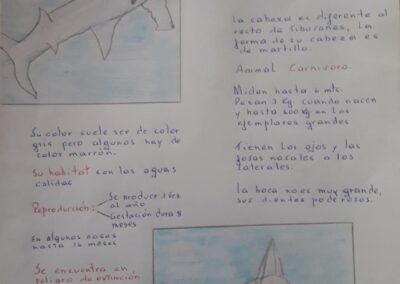 Su color suele ser de color
gris pero algunos hay de
color marrón.
Su habitat son las aguas
calidas
Reproducción:
Se produce 1 vez
al año
Gestación dura 8
meses
En algunos casos
hasta 14 meses
Se encuentra en
peligro de extinción
La cabeza es diferente al
resto de Tiburones, la
forma de su cabeza es
de martillo.
Animal Carnivoro.
Miden hasta 6 mts.
Pesan 3 Kg. cuando nacen
y hasta 600 Kg en los
ejemplares grandes
Tienen los ojos y las
fosas nasales a los
laterales.
la boca no es muy grande,
sus dientes poderosos.